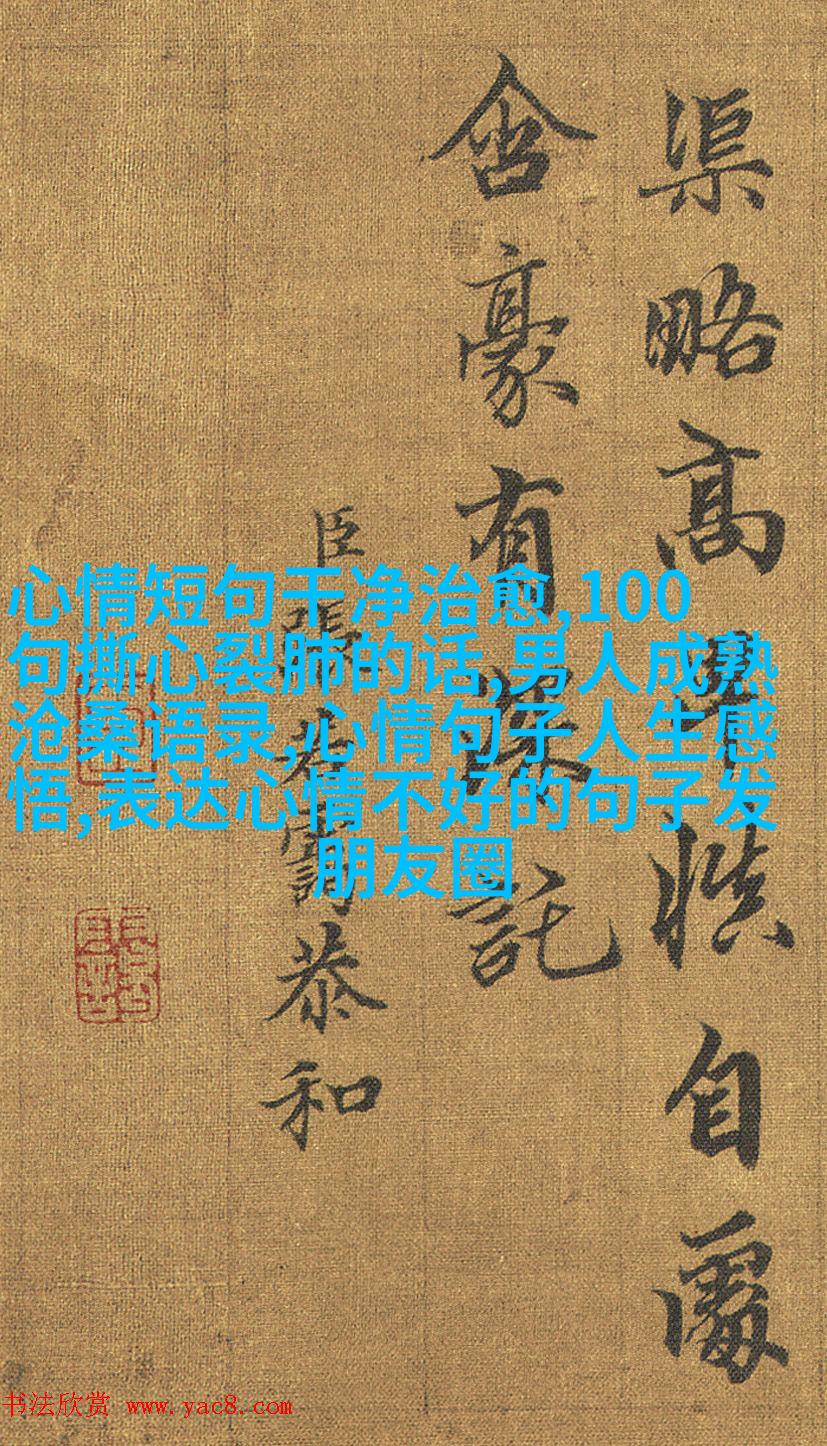 渠略高慎自處
含豪有深託
臣張若靄恭和
心情短句干净治愈,100
句撕心裂肺的话,男人成熟
沧桑语录,心情句子人生感
悟,表达心情不好的句子发
朋友圈
书法欣赏 www.yac8.com